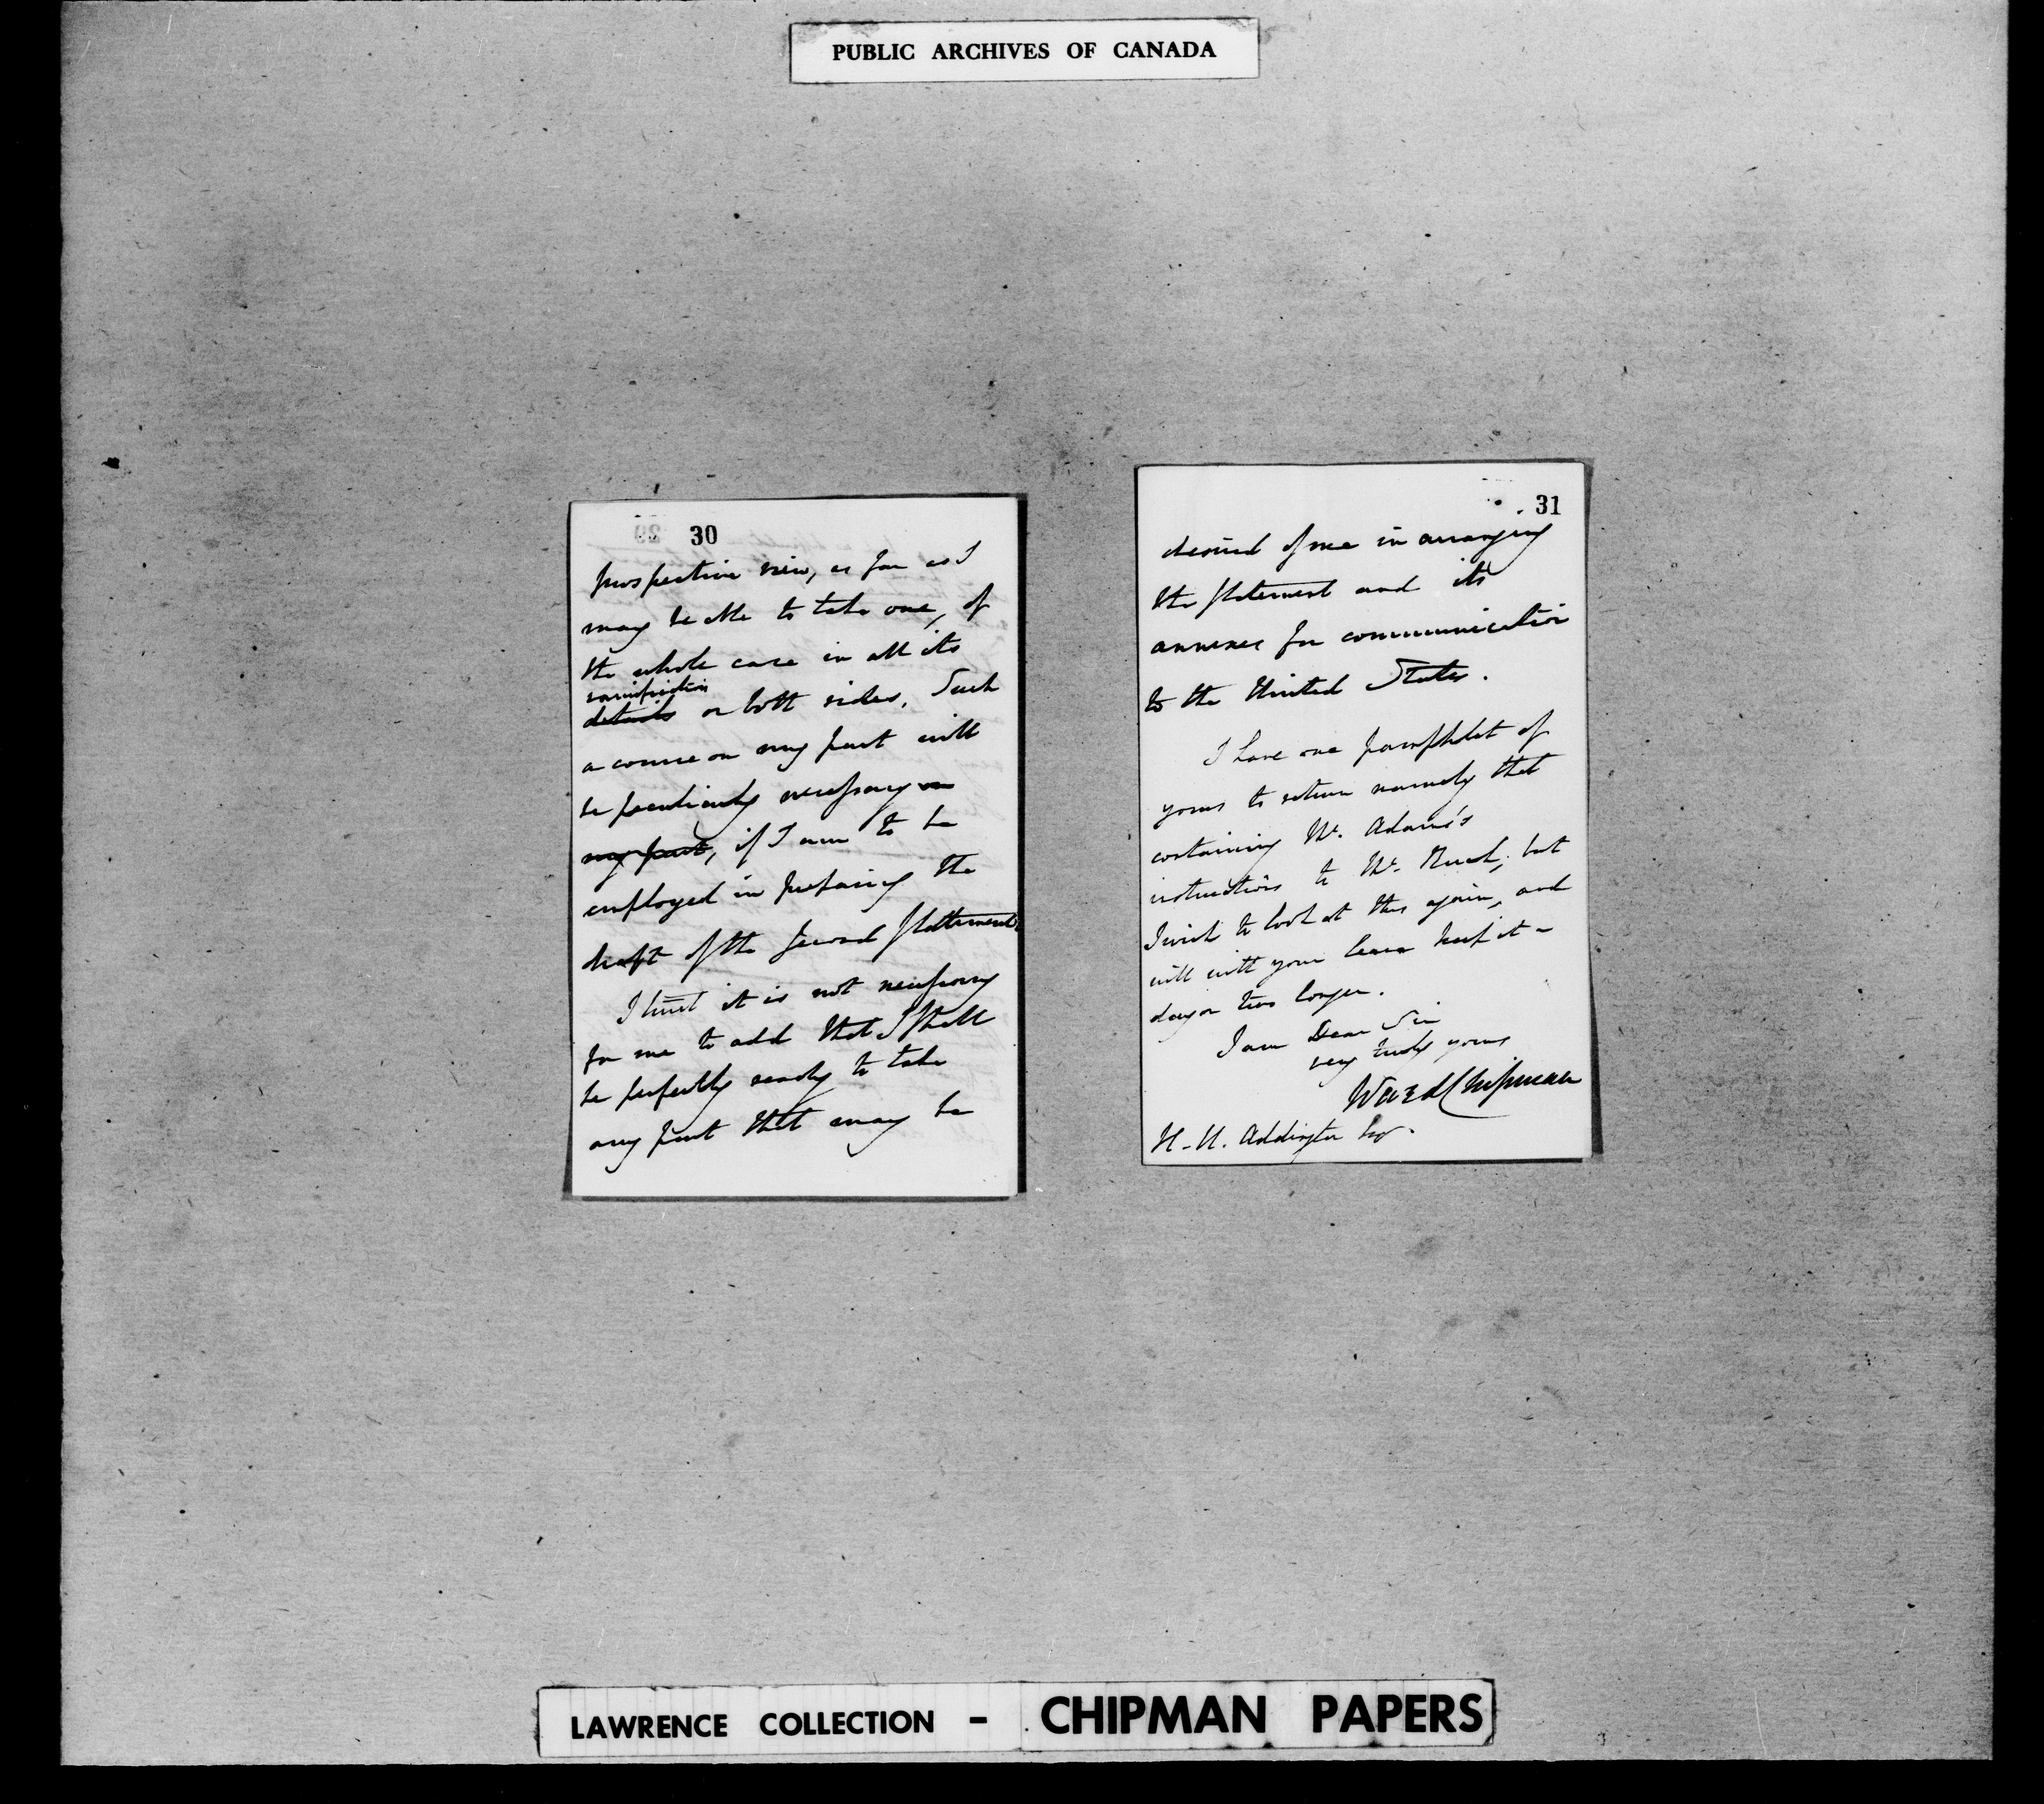 PUBLIC ARCHIVES OF CANADA
30
prospective view, as far as I
may be able to take one, of
the whole case in all its
ramification
details on both sides. Such
a course on my part will
be peculiarly necessary on
my part, if I am to be
employed in preparing the
draft of the second Statement.
I trust it is not necessary
for me to add that I shall
be perfectly ready to take
any part that may be
31
desired of me in arranging
the Statement and its
annexes for communication
to the United States.
I have one pamphlet of
yours to return namely that
containing Mr. Adams's
instructions to Mr. Rush; but
I wish to look at this again, and
will with your leave keep it a
day or two longer.
I am Dear Sir
very truly yours
Ward Chipman
H. U. Addington Esqr.
LAWRENCE COLLECTION - CHIPMAN PAPERS